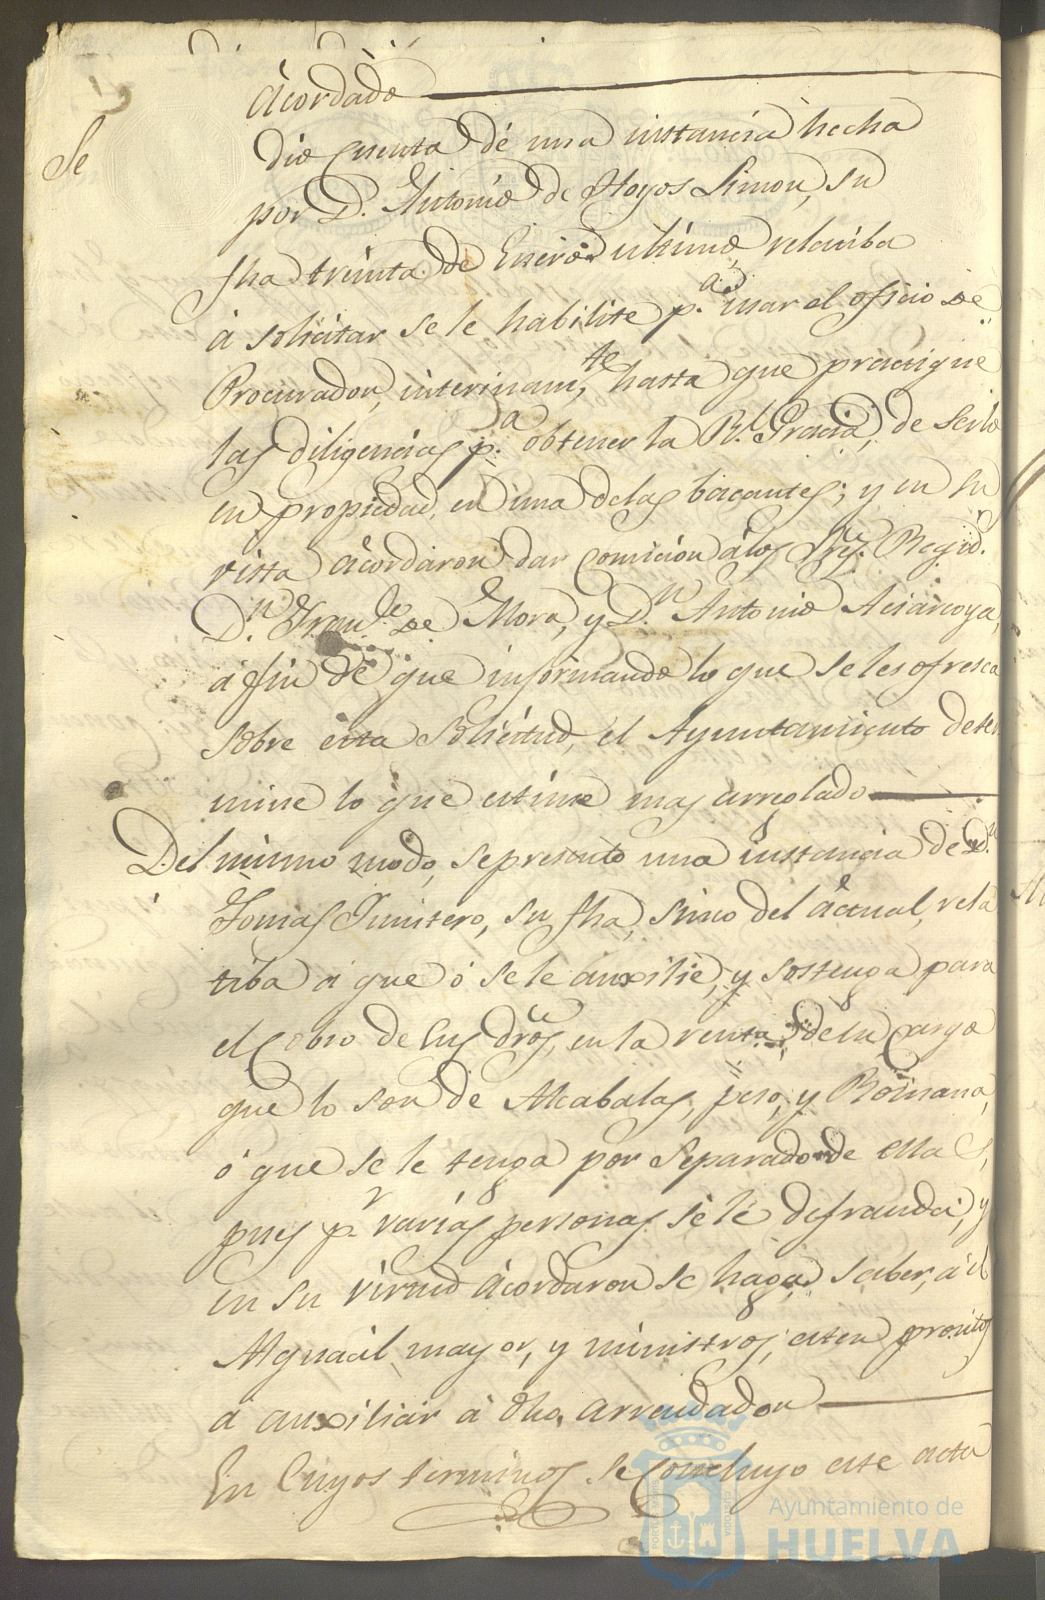 Acordado
Se
dió cuenta de una instancia hecha
por D. Antonio de Hoyos Limon, su
fha treinta de Enero ultimo, relatiba
á solicitar se le habilite p.ª usar el oficio de
Procurador, interinam.te hasta que practique
las diligencias p.ª obtener la R.l Gracia, de serlo
en propiedad, en una de las bacantes; y en su
vista acordaron dar comicion á los Sres. Regid.r
D.n Fran.co de Mora, y D.n Antonio
á fin de que informando lo que se les ofresca
sobre esta solicitud, el Ayuntamiento deter
mine lo que estime mas arreglado
Del mismo modo, se presentó una instancia de D.n
Tomas Quintero, su fha, sinco del actual, rela
tiba a que ó se le auxilie, y sostenga para
el cobro de sus dros, en la renta de su cargo
que lo son de Alcabalas, peso, y Romana,
ó que se le tenga por separado de ellas,
pues p.r varias personas se le defrauda, y
en su virtud acordaron se haga saber, á el
Alguacil mayor, y ministros, esten prontos
a auxiliar á dho. arrendador
En cuyos terminos se concluyo este acta
Ayuntamiento de
HUELVA